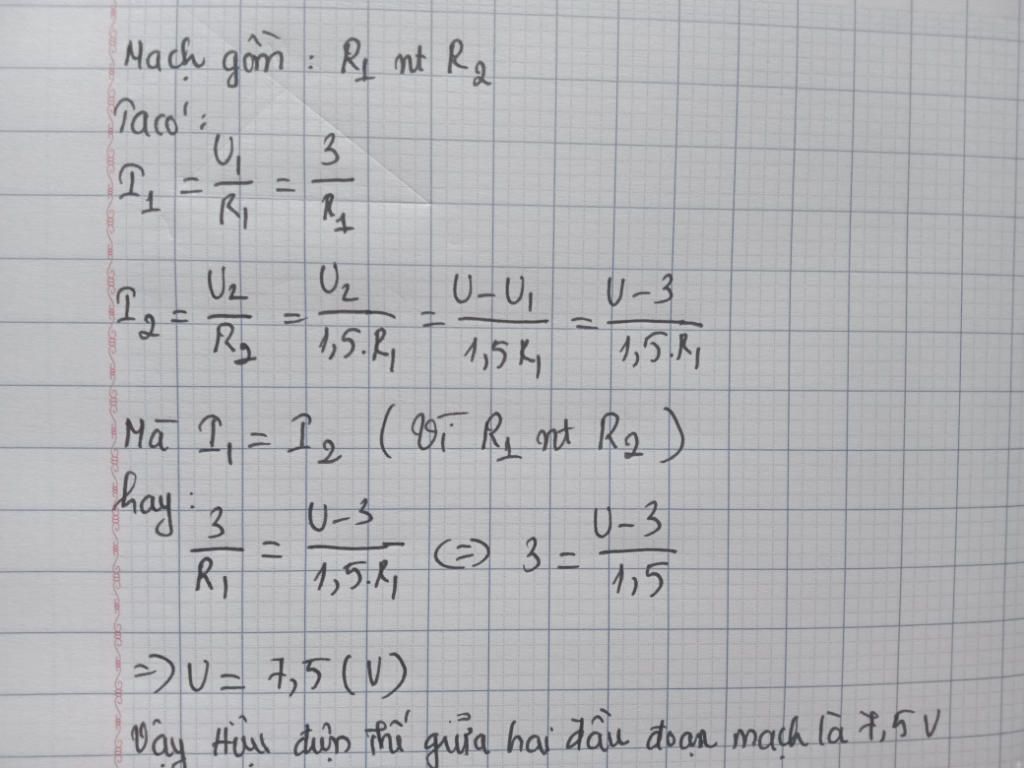 Mạch gồm : R1 nt R2
Ta có :
I1 = U1/R1 = 3/R1
I2 = U2/R2 = U2/1,5.R1 = U-U1/1,5R1 = U-3/1,5.R1
Mà I1 = I2 ( Vì R1 nt R2 )
hay : 3/R1 = U-3/1,5.R1 <=> 3 = U-3/1,5
=> U = 7,5 (V)
Vậy Hiệu điện thế giữa hai đầu đoạn mạch là 7,5 V